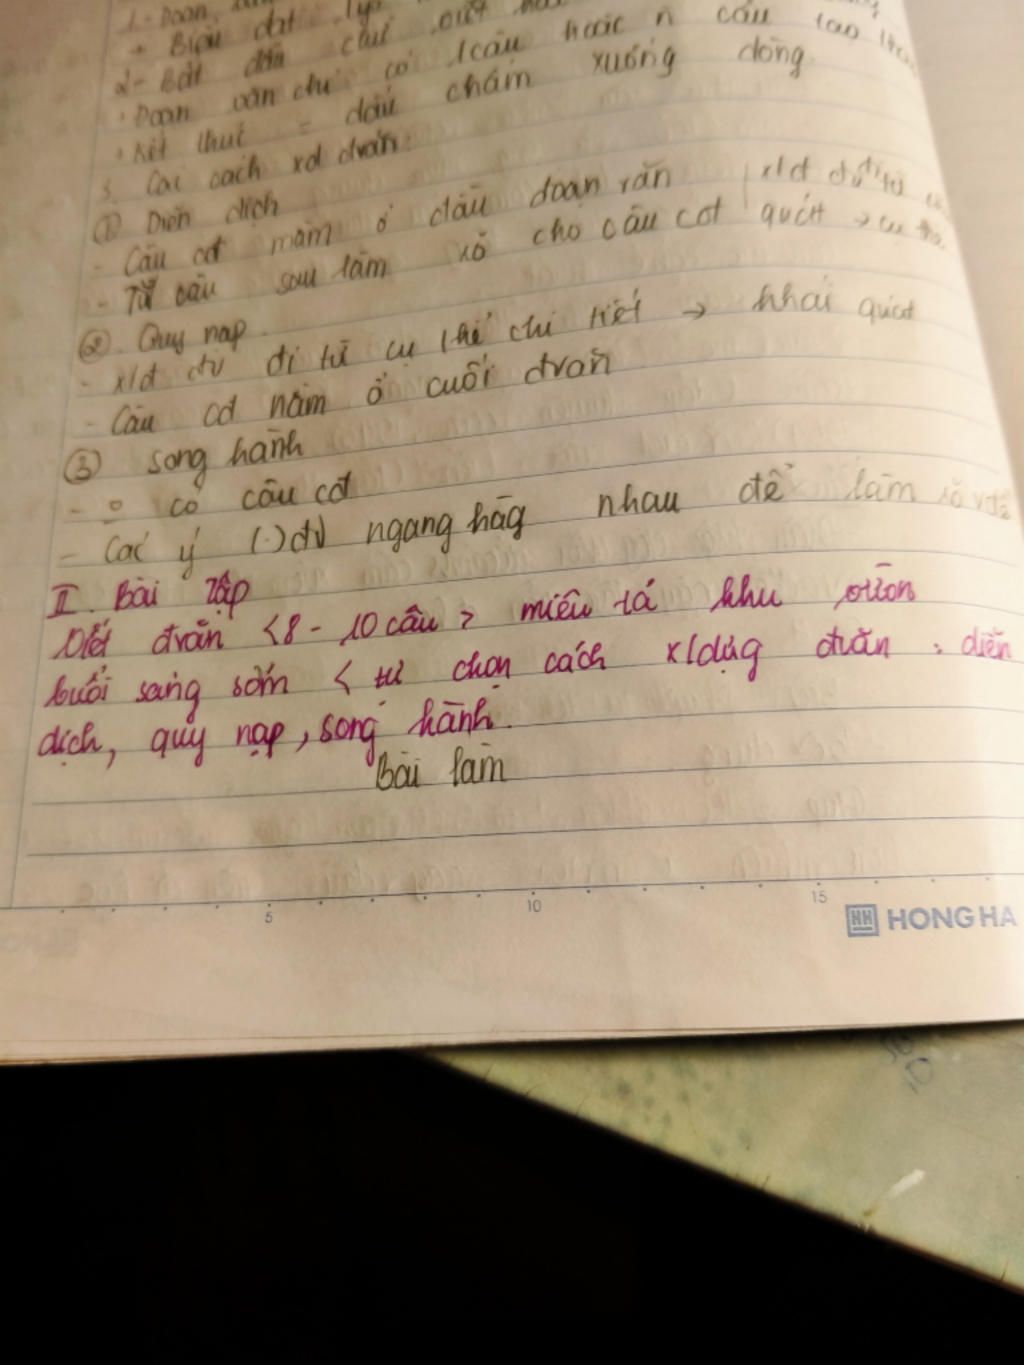 1. Đoạn
+ Biểu đạt 1 ý
2 - Bắt đầu chữ viết hoa
. Đoạn văn chỉ có 1 câu hoặc n câu tạo
+ Kết thúc = dấu chấm xuống dòng
3. Các cách xd đvăn.
① Diễn dịch
- Câu cđ nằm ở đầu đoạn văn | xld đv đi từ
- Từ câu sau làm rõ cho câu cđ | quát → cụ thể
② . Quy nạp.
- xld đv đi từ cụ thể chi tiết → khái quát
- Câu cđ nằm ở cuối đvăn
③ song hành
- o có câu cđ
- Các ý (.) đv ngang hàg nhau để làm rõ vđề
II. Bài tập
Viết đvăn <8 - 10 câu> miêu tả khu vườn
buổi sáng sớm < tự chọn cách x/dựg đvăn : diễn
dịch, quy nạp, song hành.
Bài làm
5 10 15
HH HONG HA